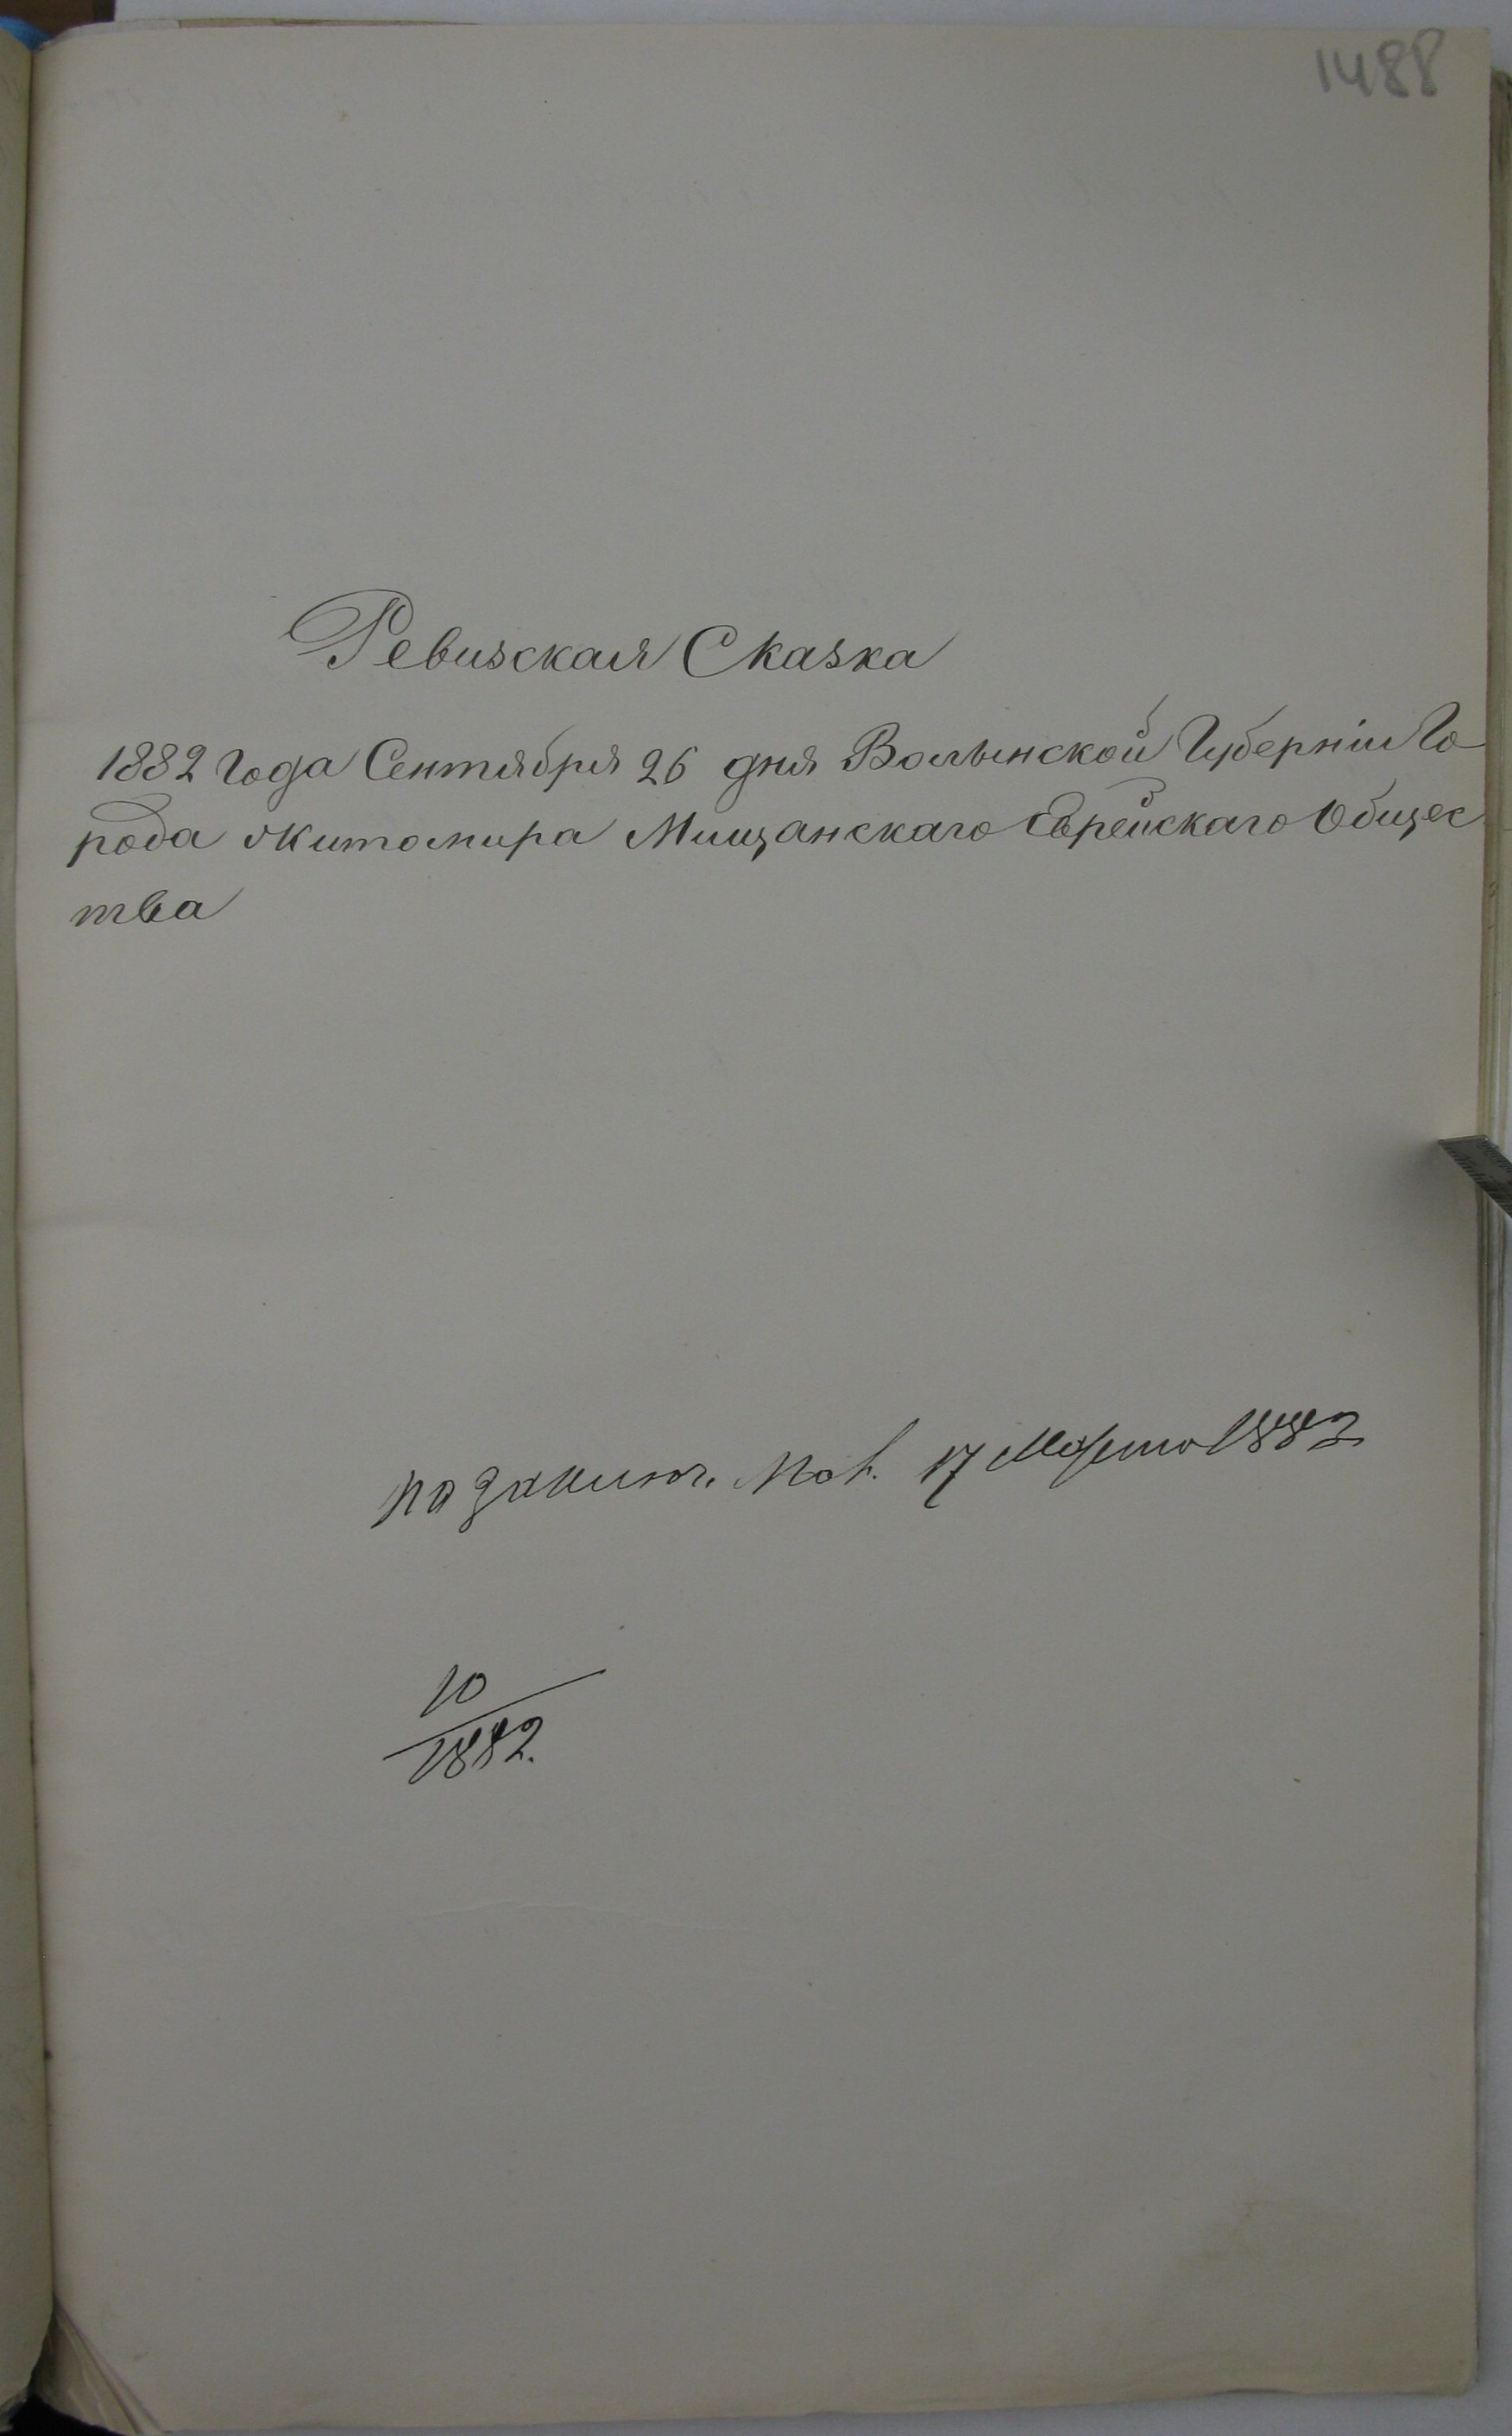 1488
Ревизская Сказка
1882 Года Сентября 26 дня Волынской Губерніи Го-
рода Житомира Мищанскаго Еврейскаго Общес
тва
по заключ. 17 Марта 1883
10
1882.